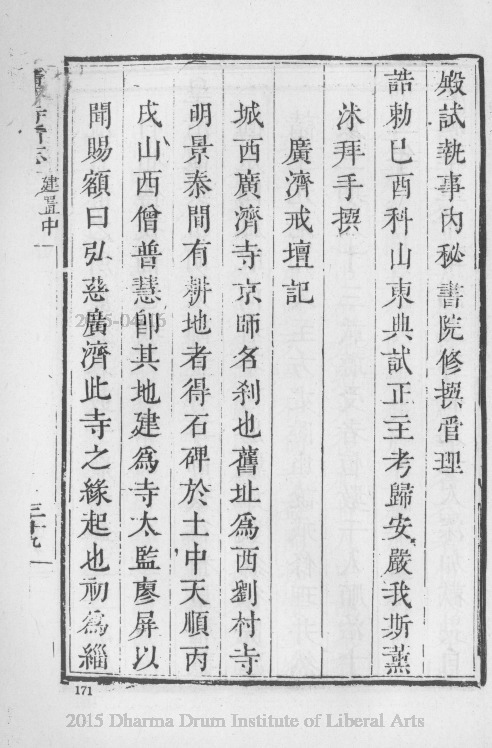 殿試執事內秘書院修撰管理
誥勅己酉科山東典試正主考歸安嚴我斯薰
沐拜手撰
廣濟戒壇記
城西廣濟寺京師名刹也舊址爲西劉村寺
明景泰間有耕地者得石碑於土中天順丙
戌山西僧普慧卽其地建爲寺太監廖屏以
聞賜額曰弘慈廣濟此寺之緣起也初爲緇
建置中
三十九
171
2015 Dharma Drum Institute of Liberal Arts